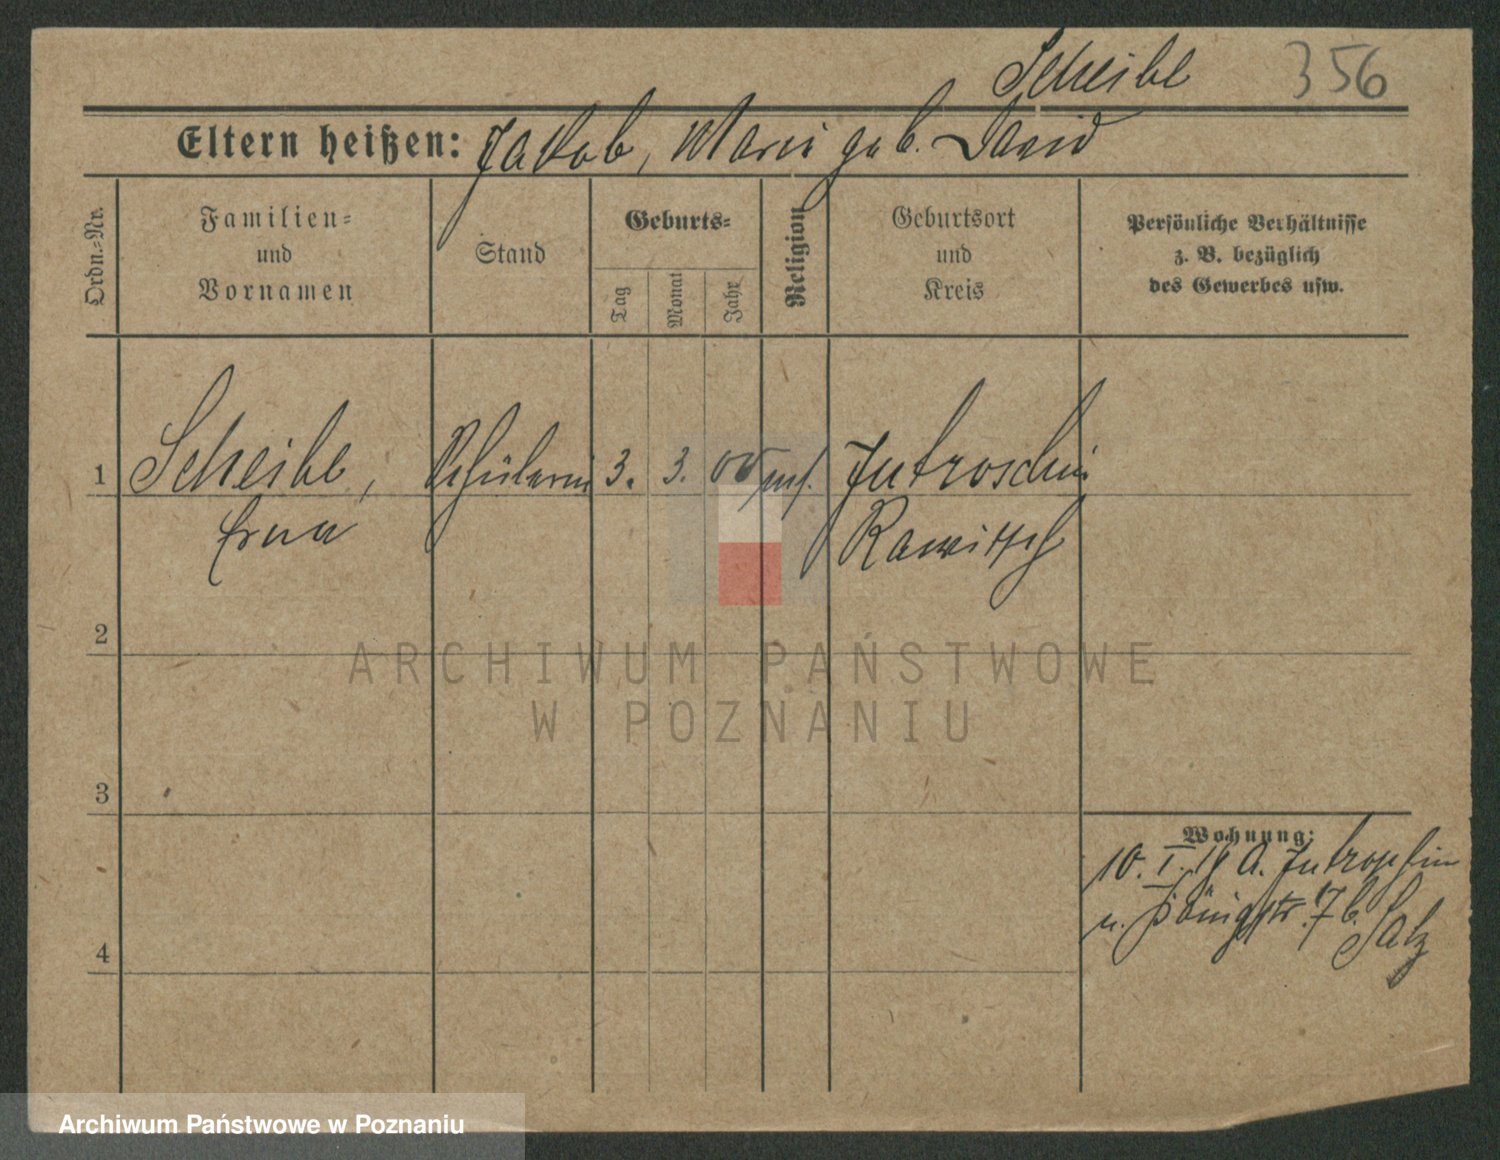 Scheibe 356
Eltern heißen: Jakob, Marie geb. David
Ordn.-Nr.
Familien-
und
Vornamen
Stand
Geburts-
Tag
Monat
Jahr
Religion
Geburtsort
und
Kreis
Persönliche Verhältnisse
z. B. bezüglich
des Gewerbes usw.
1 Scheibe, Schülerin 3. 3. 00 mos. Jutroschin
Erna Rawitsch
2
ARCHIWUM PAŃSTWOWE
W POZNANIU
3
Wohnung:
10. I. a. Jutroschin
n. Königstr. 7 b. Salz
4
Archiwum Państwowe w Poznaniu